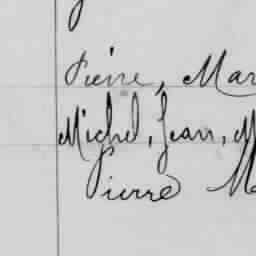 Pierre, Mar
Michel, Jean, M
Pierre M